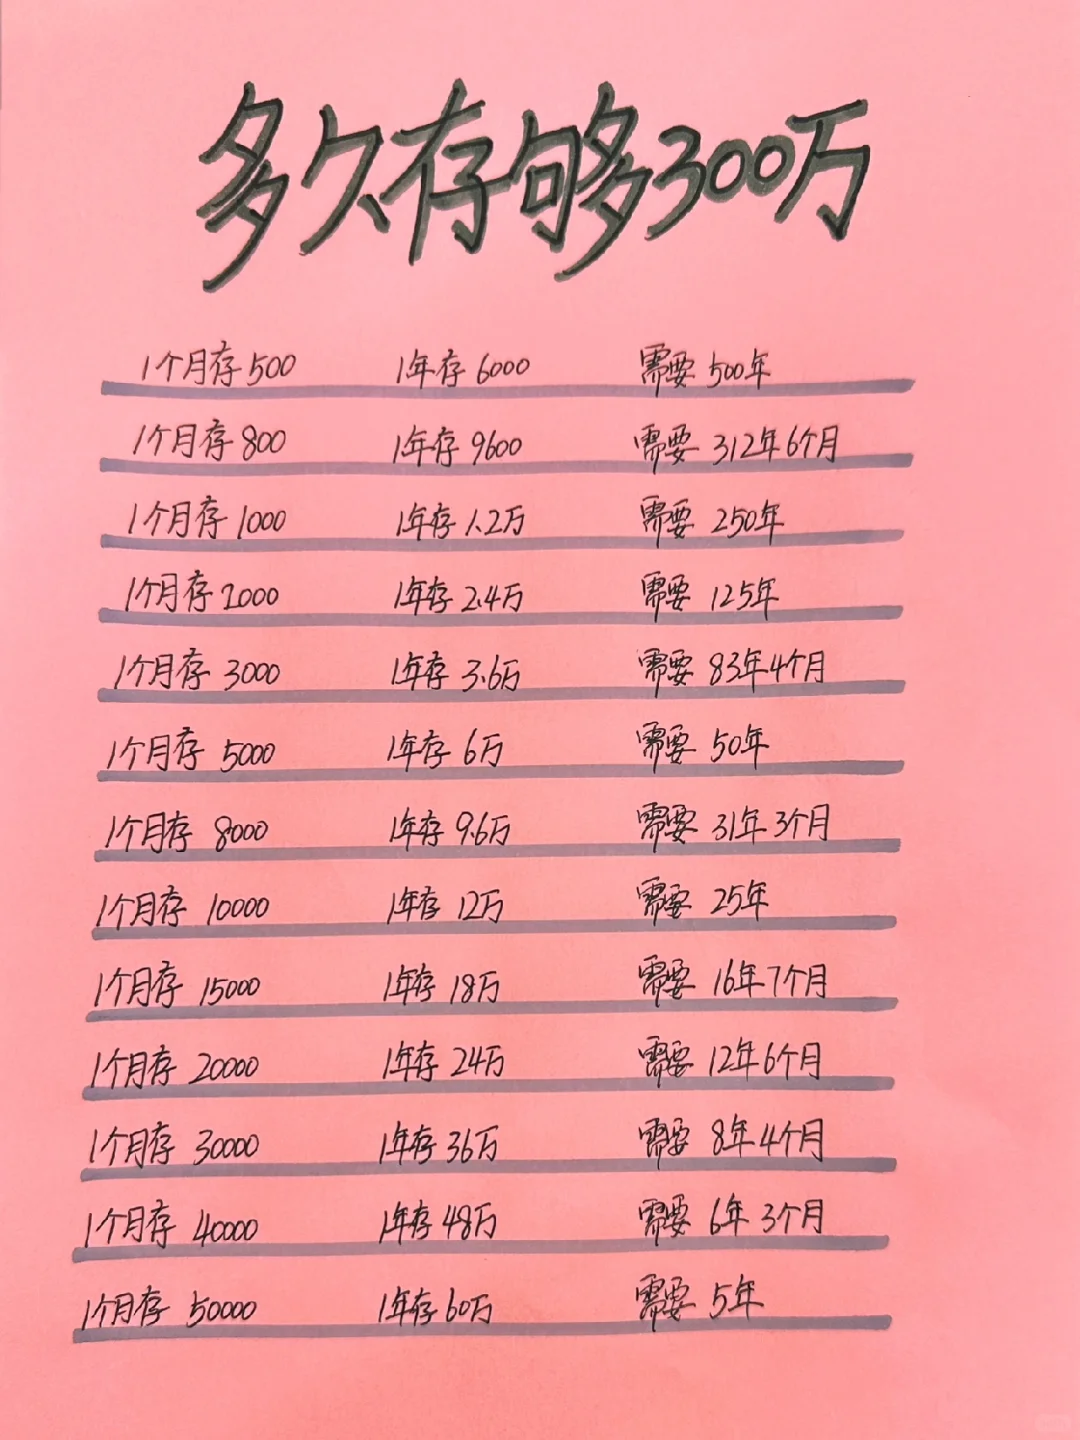 多久存够300万
1个月存500 1年存6000 需要500年
1个月存800 1年存9600 需要312年6个月
1个月存1000 1年存1.2万 需要250年
1个月存2000 1年存2.4万 需要125年
1个月存3000 1年存3.6万 需要83年4个月
1个月存5000 1年存6万 需要50年
1个月存8000 1年存9.6万 需要31年3个月
1个月存10000 1年存12万 需要25年
1个月存15000 1年存18万 需要16年7个月
1个月存20000 1年存24万 需要12年6个月
1个月存30000 1年存36万 需要8年4个月
1个月存40000 1年存48万 需要6年3个月
1个月存50000 1年存60万 需要5年